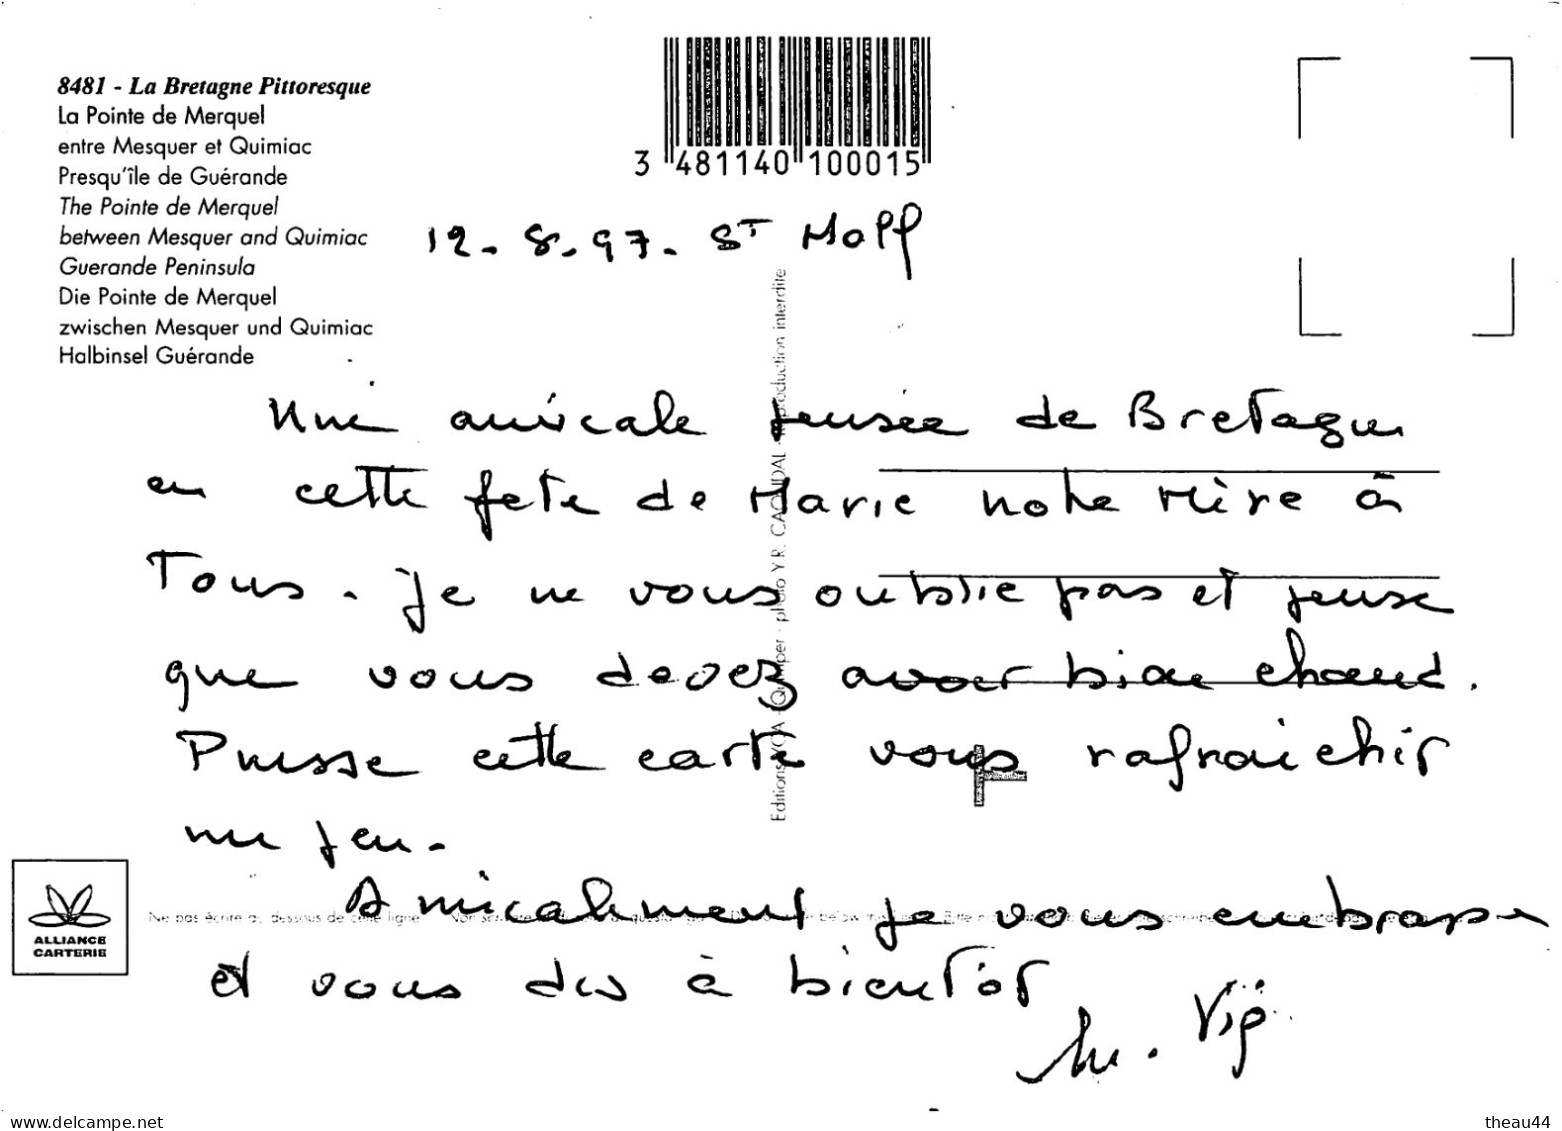 8481 - La Bretagne Pittoresque
La Pointe de Merquel
entre Mesquer et Quimiac
Presqu'île de Guérande
The Pointe de Merquel
between Mesquer and Quimiac
Guerande Peninsula
Die Pointe de Merquel
zwischen Mesquer und Quimiac
Halbinsel Guérande
3 481140 100015
12.8.97. St Molf
Une amicale pensée de Bretagne
en cette fete de Marie notre Mère à
Tous. je ne vous oublie pas et pense
que vous devez avoir bien chaud.
Puisse cette carte vous rafraichir
un peu.
Amicalement je vous embrasse
et vous dis à bientôt
Editions YCA - Quimper - photo Y.R. CAOUDAL - Reproduction interdite
Ne pas écrire au dessous de cette ligne
ALLIANCE
CARTERIE
www.delcampe.net
theau44